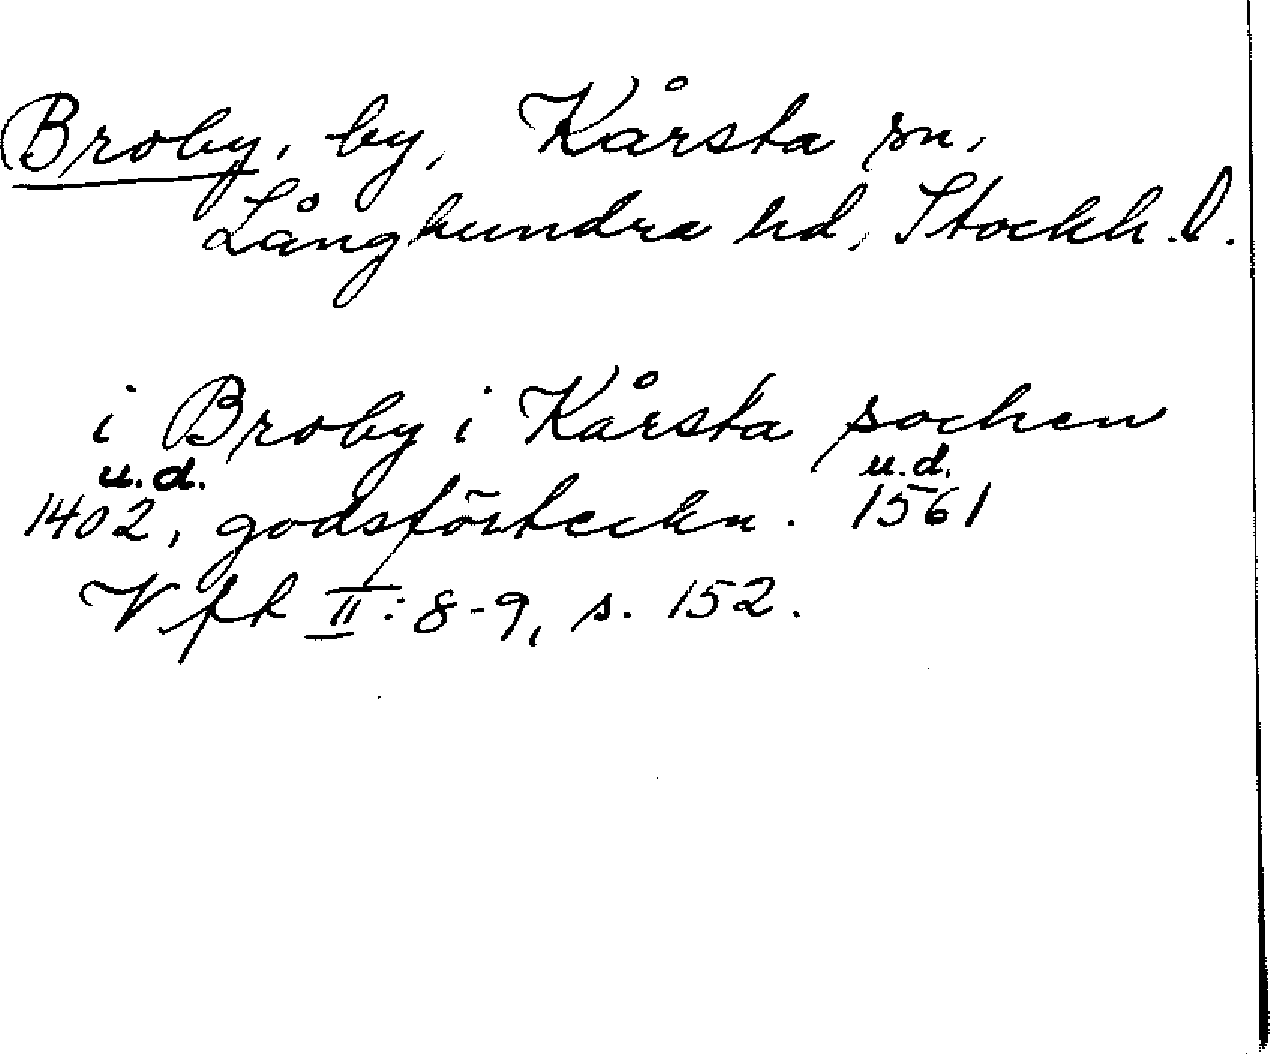 Broby, by, Kårsta sn,
Långhundra hd, Stockh. l.
i Broby i Kårsta sochen
u.d. u.d.
1402, godsförteckn. 1561
Vfh II: 8-9, s. 152.